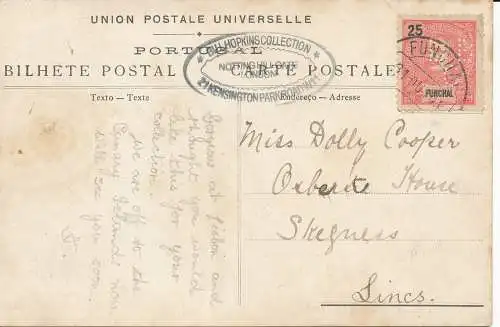 UNION POSTALE UNIVERSELLE
PORTUGAL
BILHETE POSTAL CARTE POSTALE
Texto - Texte
Endereço - Adresse
HOPKINS COLLECTION
NOTTING HILL GATE
LONDON
21 KENSINGTON PARK ROAD
25
FUNCHAL
FUNCHAL
at Lisbon and
thought you would
like this for your
collection.
We are off to the
Canary Islands now
will see you soon.
Miss Dolly Cooper
House
Skegness
Lincs.